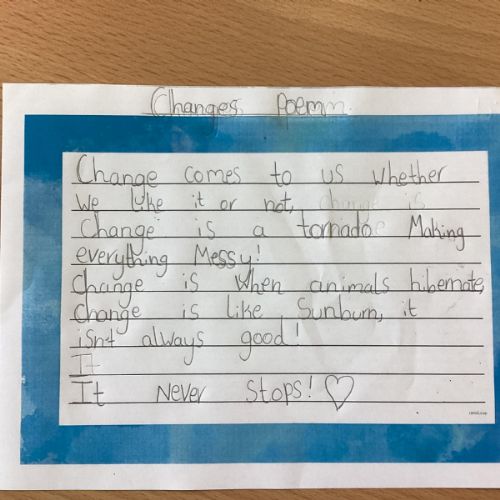 Changes poemm.
Change comes to us whether
We like it or not,
Change is a tornado Making
everything Messy!
Change is When animals hibernate,
Change is like Sunburn, it
isnt always good!
I
It Never Stops! ♡